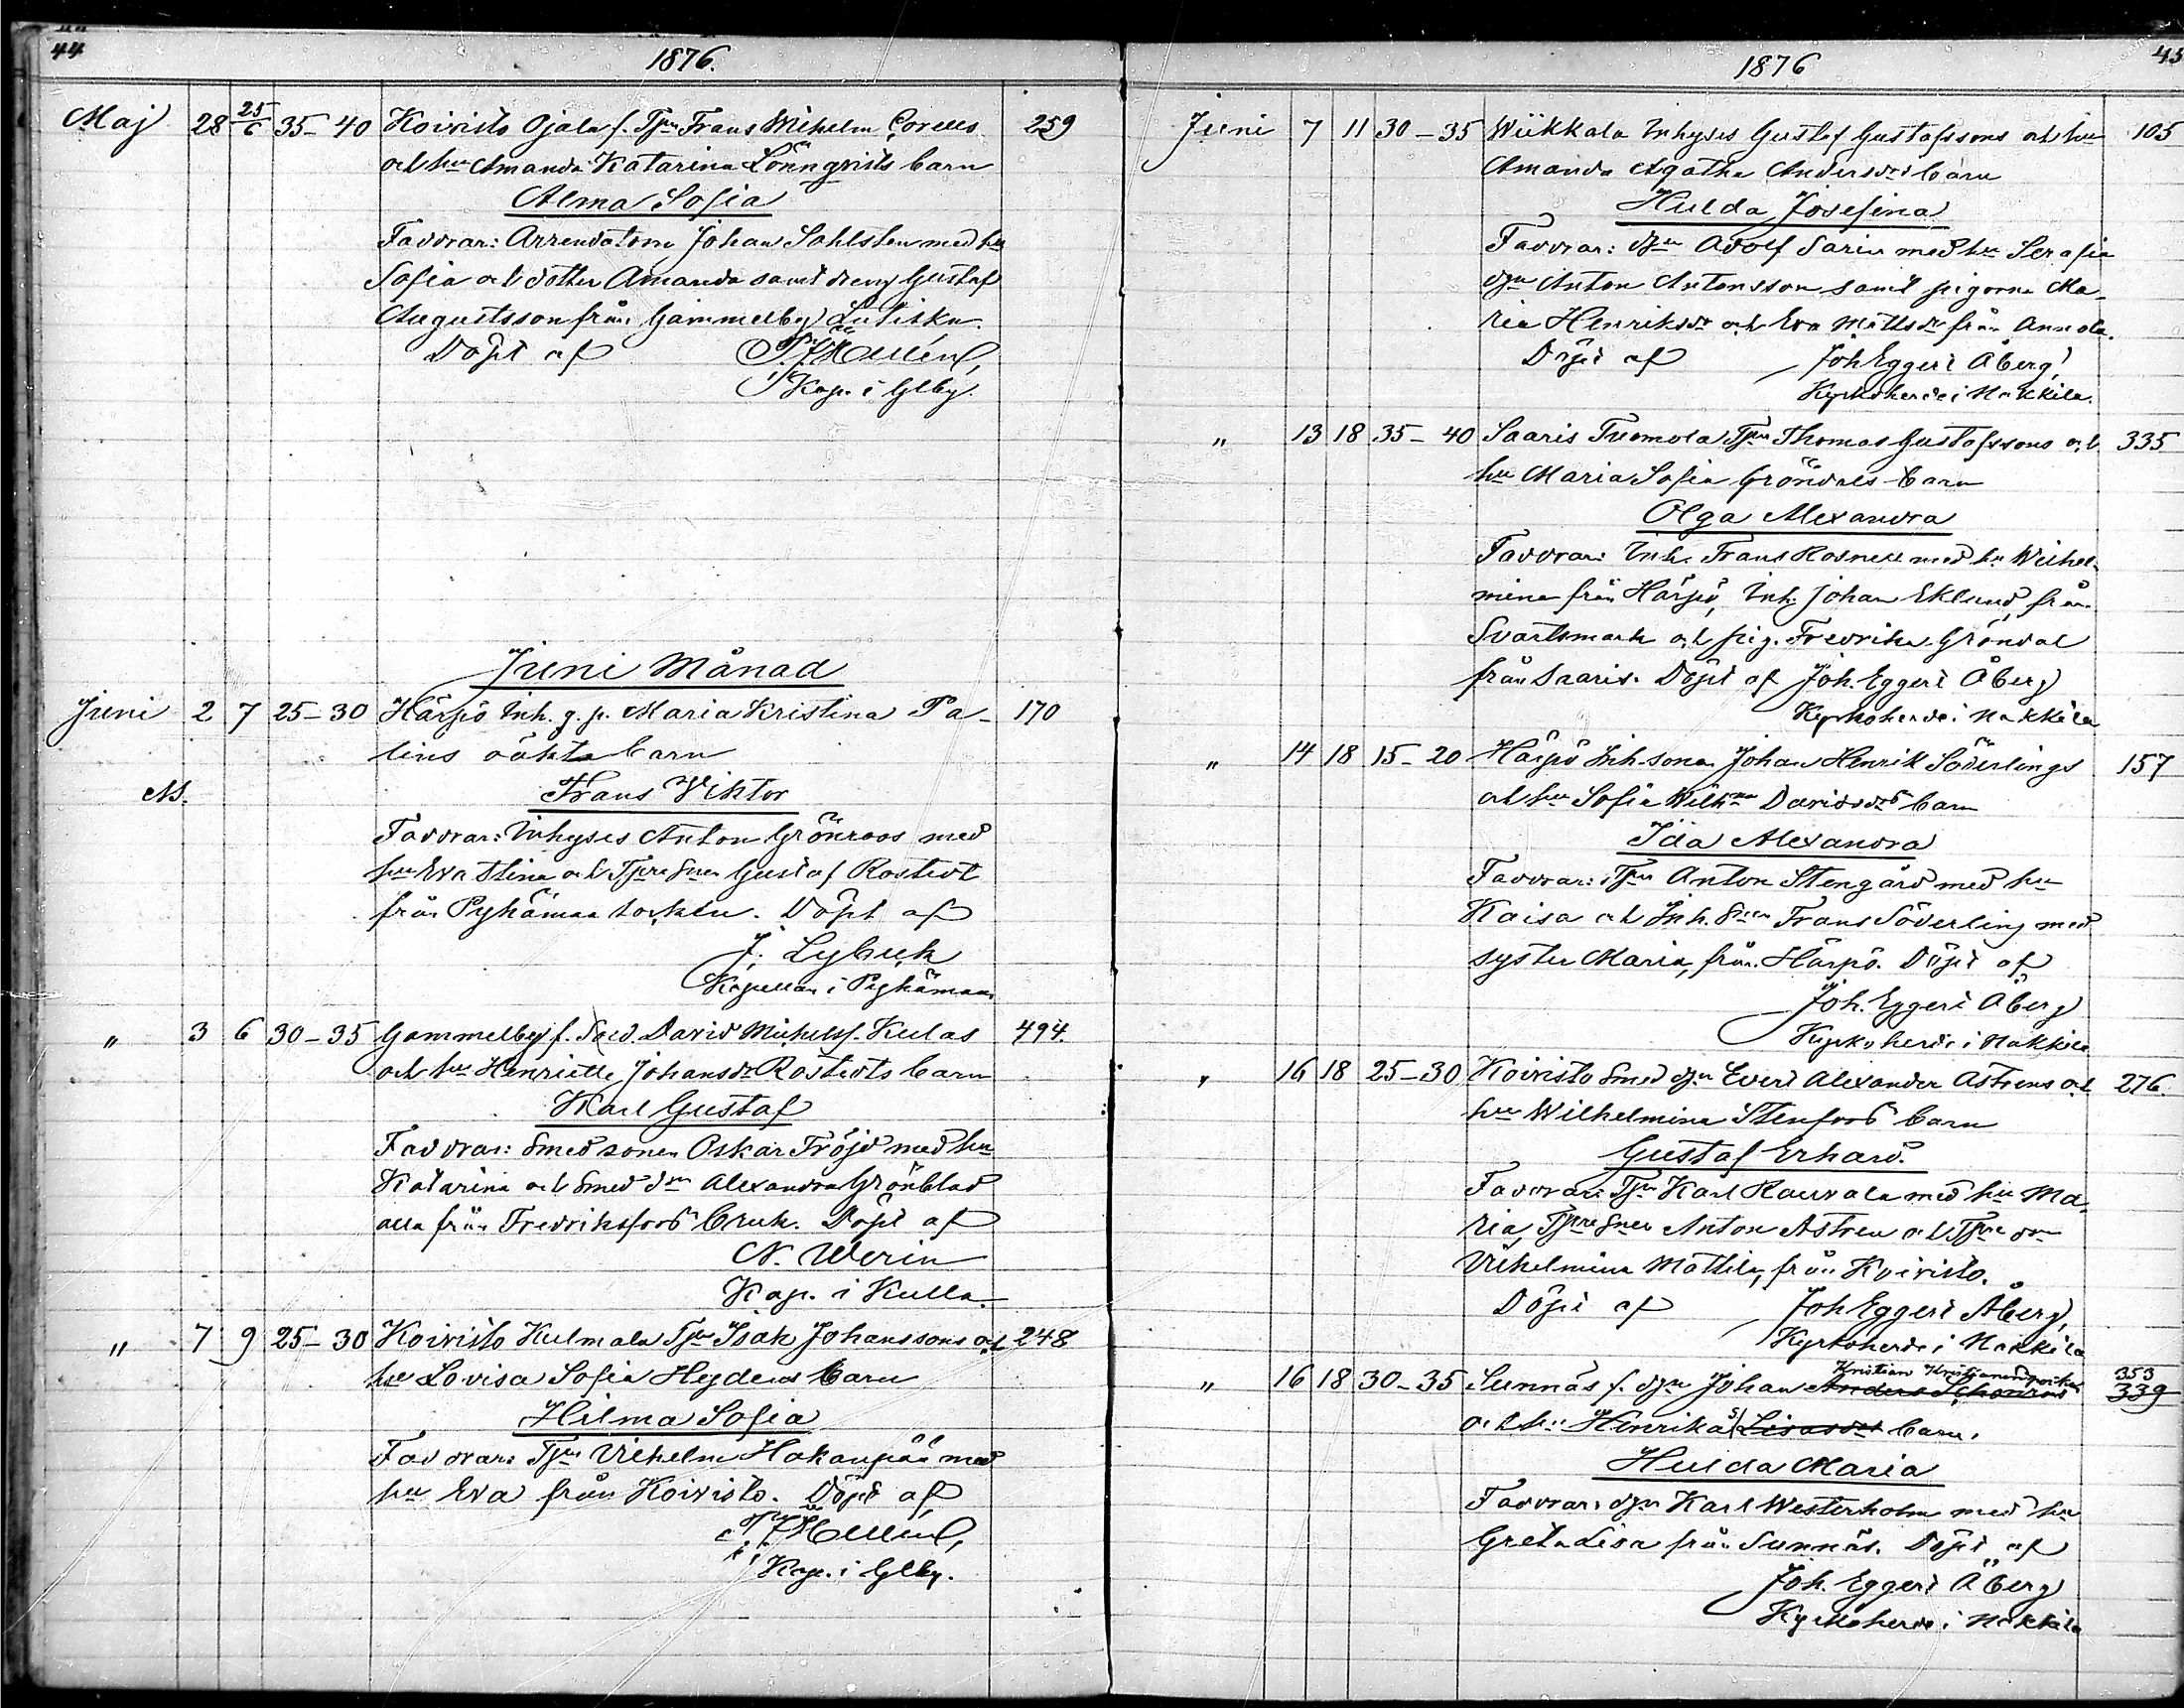 44
1876.
Maj 28 25/6 35-40 Koivisto Ojala f. Tpr Frans Wilhelm Corells 259
och hu Amanda Katarina Lönnqvists barn
Alma Sofia
Faddrar: Arrendatorn Johan Sahlsten med hu
Sofia och dotter Amanda samt dreng Gustaf
Augustsson från Gammelby
Döpt af
Kap. i Glby.
Juni Månad
Juni 2 7 25-30 Härpö Inh. g. p. Maria Kristina Pa- 170
lins oäkta barn
Frans Viktor
Faddrar: Inhyses Anton Grönroos med
hu Eva Stina och Gustaf Rostedt
från Pyhämaa socken. Döpt af
J. Lybeck
Kapellan i Pyhämaa
" 3 6 30-35 Gammelby f. Smed. David Michelsf. Kulas 494.
och hu Henriette Johansdr Rostedts barn
Karl Gustaf
Faddrar: Smedsonen Oskar Fröjd med hu
Katarina och Smed dn Alexandra Grönblad
alla från Fredriksfors bruk. Döpt af
N. Werin
Kap. i Kulla.
" 7 9 25-30 Koivisto Kulmala Tpr Isak Johanssons och 248
hu Lovisa Sofia Heydens barn
Hilma Sofia
Faddrar: Tpn Vilhelm Hakanpää med
hu Eva från Koivisto. Döpt af
Kap. i Glby.
1876
45
Juni 7 11 30-35 Wiikkala Inhyses Gustaf Gustafssons och hu 105
Amanda Agatha Andersdrs barn
Hulda Josefina
Faddrar: dgn Adolf Sarin med hu Serafia
dgn Anton Antonsson samt pigorna Ma-
ria Henriksdr och Eva Mattsdr från Annola.
Döpt af Joh Eggert Åberg,
Kyrkoherde i Nakkila.
" 13 18 35-40 Saaris Tuomola Tpn Thomas Gustafssons och 335
hu Maria Sofia Gröndals barn
Olga Alexandra
Faddrar: Inh. Frans Rosnell med hu Wilhel-
mina från Härpö, Inh. Johan Eklund från
Svartsmark och pig. Fredrika Gröndal
från Saaris. Döpt af Joh. Eggert Åberg
Kyrkoherde i Nakkila
" 14 18 15-20 Härpö Inh-sonen Johan Henrik Söderlings 157
och hu Sofia Wilhma Davidsdrs barn
Ida Alexandra
Faddrar: Tpn Anton Stengård med hu
Kaisa och Inh. Snen Frans Söderling med
syster Maria, från Härpö. Döpt af
Joh. Eggert Åberg
Kyrkoherde i Nakkila
" 16 18 25-30 Koivisto Smed dgn Evert Alexander Astrens och 276.
hu Wilhelmina Stenfors barn
Gustaf Erhard.
Faddrar: Tpn Karl Rauvala med hu Ma-
ria, Tpresnen Anton Astren och Tpre dn
Vilhelmina Mattila, från Koivisto.
Döpt af Joh Eggert Åberg,
Kyrkoherde i Nakkila
Kristian 353
" 16 18 30-35 Sunnäs f. dgn Johan Anders 339
och hu Henrikas Lisasdrs barn.
Hulda Maria
Faddrar: dgn Karl Westerholm med hu
Greta Lisa från Sunnäs. Döpt af
Joh. Eggert Åberg
Kyrkoherde i Nakkila